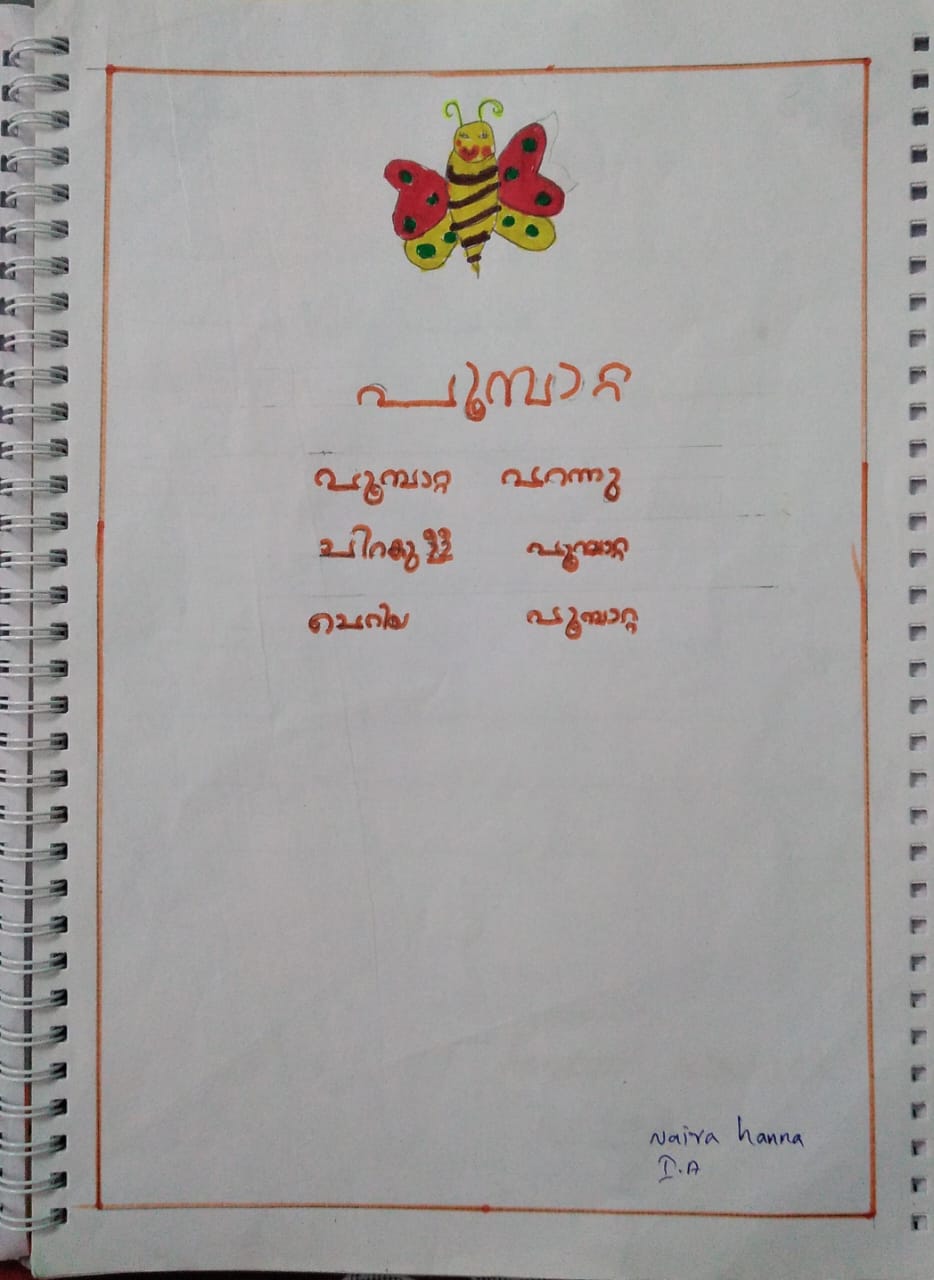 പൂമ്പാറ്റ
പൂമ്പാറ്റ പറന്നു
ചിറകുള്ള പൂമ്പാറ്റ
ചെറിയ പൂമ്പാറ്റ
Naira hanna
I.A